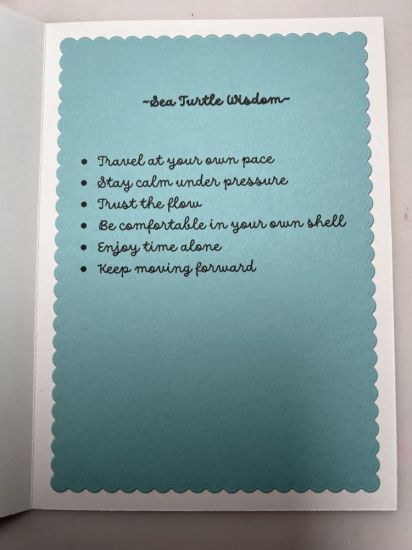 ~Sea Turtle Wisdom~
• Travel at your own pace
• Stay calm under pressure
• Trust the flow
• Be comfortable in your own shell
• Enjoy time alone
• Keep moving forward